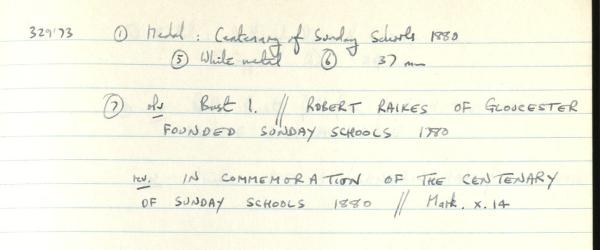 329'73 ① Medal : Centenary of Sunday Schools 1880
⑤ White metal ⑥ 37 mm
⑦ obv Bust l. // ROBERT RAIKES OF GLOUCESTER
FOUNDED SUNDAY SCHOOLS 1780
rev. IN COMMEMORATION OF THE CENTENARY
OF SUNDAY SCHOOLS 1880 // Mark. x. 14